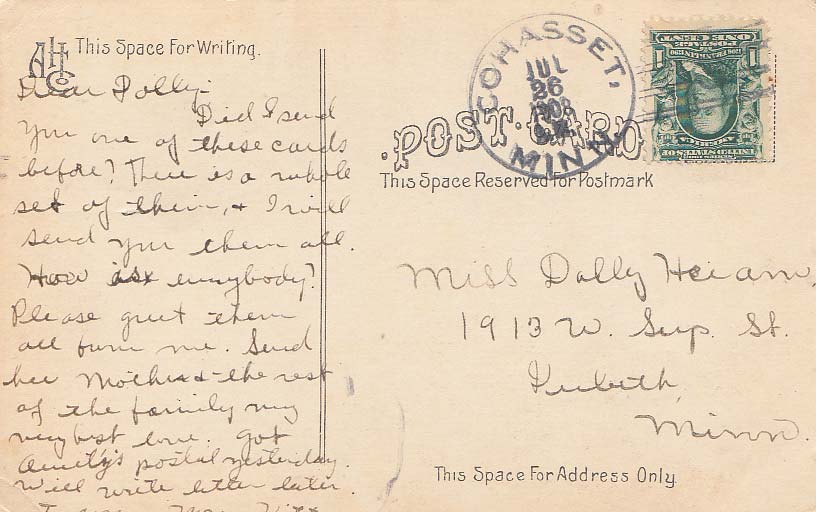 This Space For Writing.
Dear Dolly:-
Did I send
you one of these cards
before? There is a whole
set of them, & I will
send you them all.
How is everybody?
Please greet them
all from me. Send
her Mother & the rest
of the family my
very best love. Got
Aunty's postal yesterday.
Will write letter later.
COHASSET,
JUL
26
1908
MINN.
ONE CENT
POSTAGE
1
1
POST CARD
This Space Reserved For Postmark
Miss Dolly Heiam,
1913 W. Sup. St.
Minn.
This Space For Address Only.